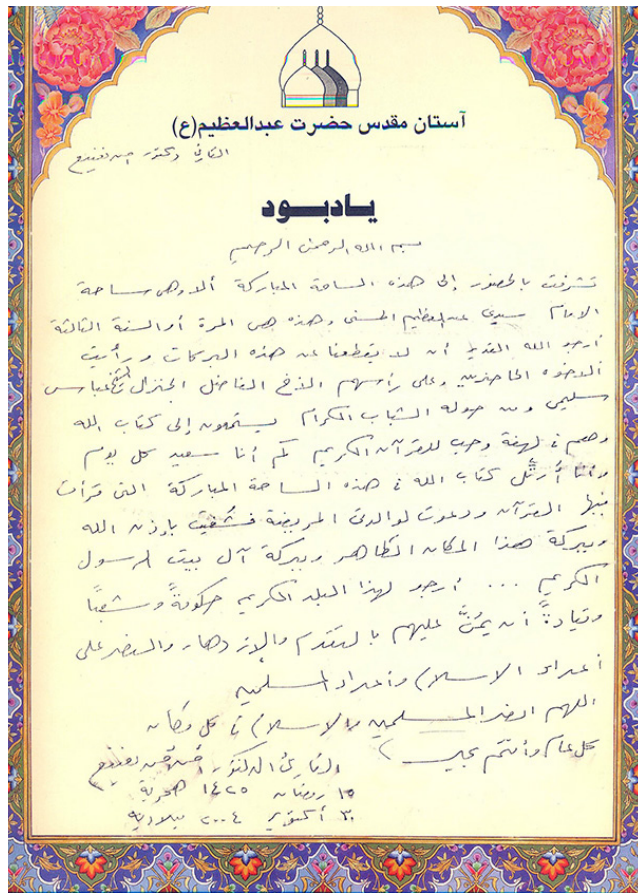 آستان مقدس حضرت عبدالعظیم(ع)
القارئ دكتور احمد نعينع
یادبود
بسم الله الرحمن الرحيم
تشرفت بالحضور إلى هذه الساحة المباركة ألا وهى ساحة
الامام سيدى عبدالعظيم الحسنى وهذه هى المرة أو السنة الثالثة
أرجو الله القدير أن لا يقطعنا عن هذه البركات ورأيت
الاخوة الحاضرين وعلى رأسهم الأخ الفاضل الجنرال عباس
سليمى ومن حوله الشباب الكرام يستمعون إلى كتاب الله
وهم فى لهفة وحب للقرآن الكريم كم أنا سعيد كل يوم
وأنا أُرتِّل كتاب الله فى هذه الساحة المباركة التى قرأت
فيها القرآن ودعوت لوالدتى المريضة فشفيت بإذن الله
وببركة هذا المكان الطاهر وببركة آل بيت الرسول
الكريم ... أرجو لهذا البلد الكريم حكومةً وشعباً
وقيادةً أن يمُنَّ عليهم بالتقدم والإزدهار والنصر على
أعداء الاسلام وأعداء المسلمين
اللهم انصر المسلمين والاسلام فى كل مكان
كل عام وأنتم بخير
القارئ الدكتور احمد نعينع
١٥ رمضان ١٤٢٥ هجرية
٣٠ أكتوبر ٢٠٠٤ ميلادية